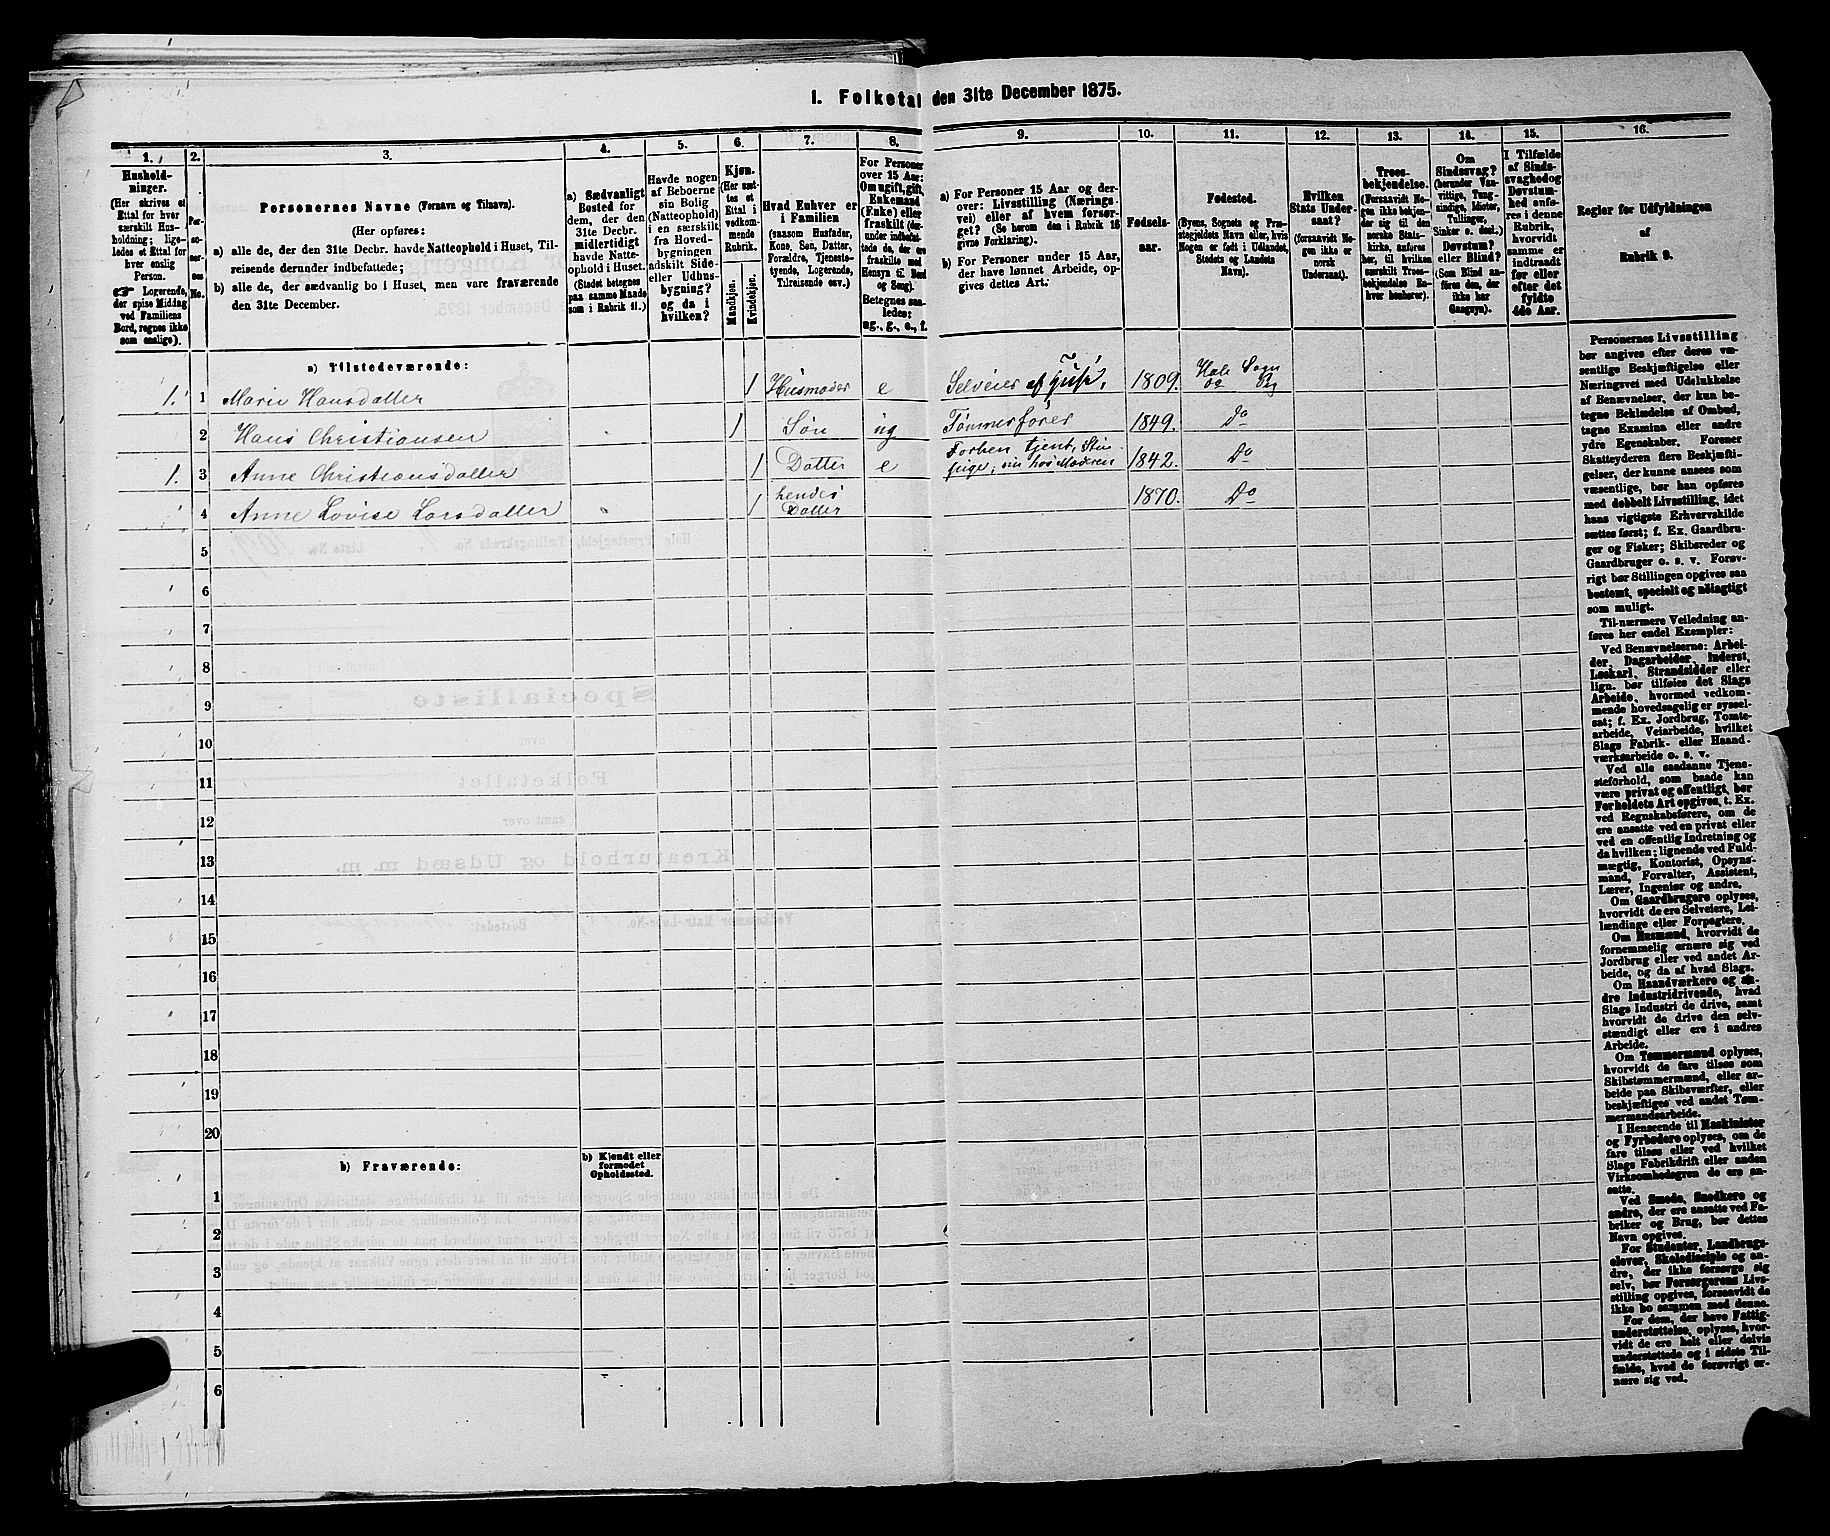 I. Folketal den 31te December 1875.
1. 2. 3. 4. 5. 6. 7. 8. 9. 10. 11. 12. 13. 14. 15. 16.
Husholdninger.
(Her skrives et
Ettal for hver
særskilt Husholdning;
ligeledes et Ettal for
hver enslig
Person.
☞ Logerende,
der spise Middag
ved Familiens
Bord, regnes ikke
som enslige).
Personernes No.
Personernes Navne (Fornavn og Tilnavn).
(Her opføres:
a) alle de, der den 31te Decbr. havde Natteophold i Huset, Tilreisende derunder indbefattede;
b) alle de, der sædvanlig bo i Huset, men vare fraværende
den 31te December.
a) Sædvanligt
Bosted for
dem, der den
31te Decbr.
midlertidigt
havde Natteophold i Huset.
(Stedet betegnes
paa samme Maade
som i Rubrik 11.)
Havde nogen
af Beboerne
sin Bolig
(Natteophold)
i en særskilt
fra Hovedbygningen
adskilt Side-
eller Udhusbygning?
og da i
hvilken?
Kjøn.
(Her sættes et
Ettal i
vedkommende
Rubrik.
Mandkjøn.
Kvindekjøn.
Hvad Enhver er
i Familien
(saasom Husfader,
Kone, Søn, Datter,
Forældre, Tjenestetyende, Logerende,
Tilreisende osv.)
For Personer
over 15 Aar:
Om ugift, gift,
Enkemand
(Enke) eller
fraskilt (derunder indbefattede de, der ere
fraskilte med
Hensyn til Bord
og Seng).
Betegnes saaledes:
ug., g., e., f.
a) For Personer 15 Aar og derover: Livsstilling (Næringsvei) eller af hvem forsørget? (Se herom den i Rubrik 16
givne Forklaring).
b) For Personer under 15 Aar,
der have lønnet Arbeide, opgives dettes Art.
Fødselsaar.
Fødested.
(Byens, Sognets og Præstegjeldets Navn eller, hvis
Nogen er født i Udlandet,
Stedets og Landets
Navn).
Hvilken
Stats Undersaat?
(forsaavidt Nogen ikke er
norsk
Undersaat).
Troesbekjendelse.
(Forsaavidt Nogen ikke bekjender sig til den
norske Statskirke, anføres
her, til hvilken
særskilt Troesbekjendelse Enhver henhører).
Om
Sindssvag?
(herunder Vanvittige, Tungsindige, Idioter,
Tullinger,
Sinker o. desl.)
Døvstum?
eller Blind?
(Som Blind anføres den, der
ikke har
Gangsyn).
I Tilfælde
af Sindssvaghed og
Døvstumhed anføres i denne
Rubrik,
hvorvidt
samme er
indtraadt
før eller
efter det
fyldte
4de Aar.
Regler for Udfyldningen
af
Rubrik 9.
a) Tilstedeværende:
1. 1 Marie Hansdatter 1 Husmoder e Selveier af Jord, 1809. Hole Sogn og Pg
2 Hans Christiansen 1 Søn ug Tømmerfører 1849. Do
1. 3 Anne Christiansdatter 1 Datter e Forhen tjent, nu hos Moderen 1842. Do
4 Anne Lovise Larsdatter 1 hendes Datter 1870. Do
5
6
7
8
9
10
11
12
13
14
15
16
17
18
19
20
b) Fraværende:
b) Kjendt eller
formodet
Opholdssted.
1
2
3
4
5
6
Personernes Livsstilling
bør angives efter deres væsentlige Beskjæftigelse eller
Næringsvei med Udelukkelse
af Benævnelser, der kun betegne Beklædelse af Ombud,
tagne Examina eller andre
ydre Egenskaber. Forener
Skatteyderen flere Beskjæftigelser, der kunne ansees som
væsentlige, bør han opføres
med dobbelt Livsstilling, idet
hans vigtigste Erhvervskilde
sættes først; f. Ex. Gaardbruger og Fisker; Skibsreder og
Gaardbruger o. s. v. Forøvrigt bør Stillingen opgives saa
bestemt, specielt og nöiagtigt
som muligt.
Til nærmere Veiledning anføres her endel Exempler:
Ved Benævnelserne: Arbeider, Dagarbeider, Inderst,
Løskarl, Strandsidder eller
lign. bør tilføies det Slags
Arbeide, hvormed vedkommende hovedsagelig er sysselsat; f. Ex. Jordbrug, Tomtearbeide, Veiarbeide, hvilket
Slags Fabrik- eller Haandværksarbeide o. s. v.
Ved alle saadanne Tjenesteforhold, som baade kan
være privat og offentligt, bør
Forholdets Art opgives, t. Ex.
ved Regnskabsførere, om de
ere ansatte ved en privat eller
ved en offentlig Indretning og
da hvilken; lignende ved Fuldmægtig, Kontorist, Opsynsmand, Forvalter, Assistent,
Lærer, Ingeniør og andre.
Om Gaardbrugere oplyses,
hvorvidt de ere Selveiere, Leilændinge eller Forpagtere.
Om Husmænd, hvorvidt de
fornemmelig ernære sig ved
Jordbrug eller ved andet Arbeide, og da af hvad Slags.
Om Haandværkere og andre Industridrivende, hvad
Slags Industri de drive, samt
hvorvidt de drive den selvstændigt eller ere i andres
Arbeide.
Om Tømmermænd oplyses,
hvorvidt de fare tilsøs som
Skibstømmermænd, eller arbeide paa Skibsværfter, eller
beskjæftiges ved andet Tømmermandsarbeide.
I Henseende til Maskinister
og Fyrbødere oplyses, om de
fare tilsøs eller ved hvilket
Slags Fabrikdrift eller anden
Virksomhed de ere ansatte.
Ved Smede, Snedkere og
andre, der ere ansatte ved Fabriker og Brug, bør dettes
Navn opgives.
For Studenter, Landbrugselever, Skoledisciple og andre, der ikke forsørge sig
selv, bør Forsørgerens Livsstilling opgives, forsaavidt de
ikke bo sammen med denne.
For dem, der have Fattigunderstøttelse, oplyses, hvorvidt de ere helt eller delvis
understøttede og i sidste Tilfælde, hvad de forøvrigt ernære sig ved.